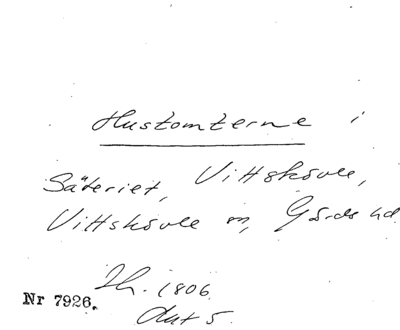 Hustomterne i
Säteriet, Vittskövle,
Vittskövle sn, Gärds hd
Th. 1806
Nr 7926. Avt 5.